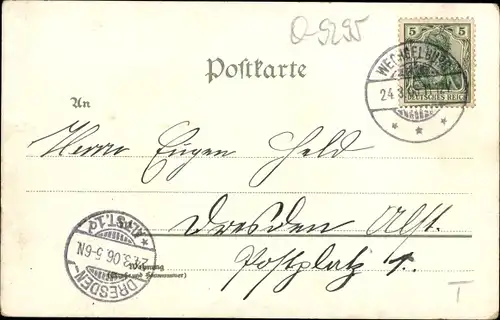 O-5295
5 5
DEUTSCHES REICH
WECHSELBURG
24.3.
Postkarte
An
Herrn Eugen Held
Dresden Altst.
Postplatz 1.
Wohnung
(Straße und Hausnummer)
DRESDEN-
*ALTST.1d
24.3.06.5-6N.
T